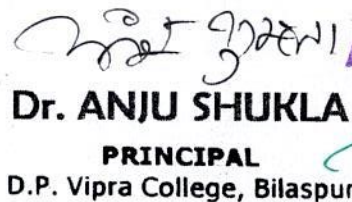 Dr. ANJU SHUKLA
PRINCIPAL
D.P. Vipra College, Bilaspur